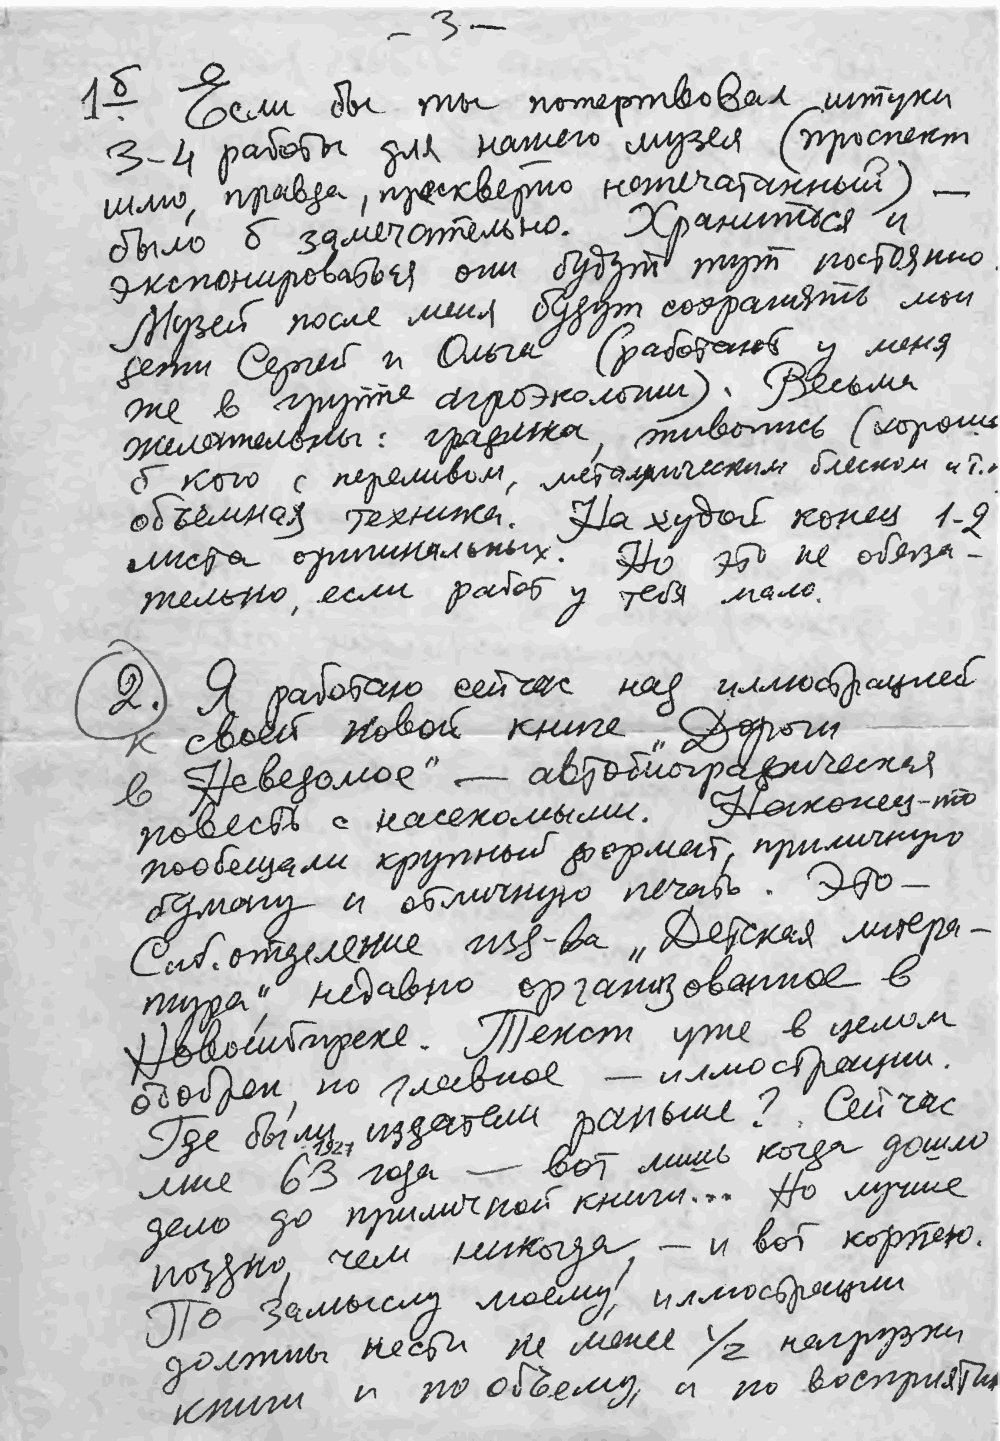 – 3 –
1б. Если бы ты пожертвовал штуки
3-4 работы для нашего музея (проспект
шлю, правда, прескверно напечатанный) —
было б замечательно. Храниться и
экспонироваться они будут тут постоянно.
Музей после меня будут сохранять мои
дети Сергей и Ольга (работают у меня
же в группе агроэкологии). Весьма
желательны: графика, живопись (хорошо
б кого с переливом, металлическим блеском и т.п.
объёмная техника. На худой конец 1-2
листа оригинальных. Но это не обяза-
тельно, если работ у тебя мало.
2. Я работаю сейчас над иллюстрацией
к своей новой книге „Дороги
в Неведомое" — автобиографическая
повесть с насекомыми. Наконец-то
пообещали крупный формат, приличную
бумагу и отличную печать. Это —
Сиб. отделение изд-ва „Детская литера-
тура", недавно организованное в
Новосибирске. Текст уже в целом
одобрен, но главное — иллюстрации.
Где были издатели раньше? Сейчас
1927
мне 63 года — вот лишь когда дошло
дело до приличной книги... Но лучше
поздно, чем никогда, — и вот корпею.
По замыслу моему, иллюстрации
должны нести не менее 1/2 нагрузки
книги и по объему, и по восприятию